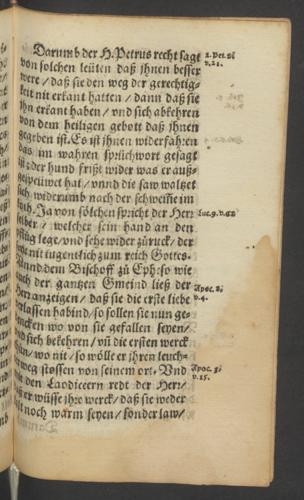 Darumb der H. Petrus recht sagt
von solchen leüten daß jhnen besser
were / daß sie den weg der gerechtig-
keit nit erkant hatten / dann daß sie
jhn erkant haben / vnd sich abkehren
von dem heiligen gebott daß jhnen
gegeben ist. Es ist jhnen widerfahren
das im wahren sprüchwort gesagt
ist: der hund frißt wider was er auß-
gespeüwet hat / vnnd die saw waltzet
sich widerumb nach der schwemme im
koth. Ja von sölchen spricht der Herr
selber / welcher sein hand an den
pflüg lege / vnd sehe wider zürück / der
seye nit tugentlich zum reich Gottes.
Vnnd dem Bischoff zü Eph: so wie
auch der gantzen Gmeind ließ der
Herr anzeigen / daß sie die erste liebe
verlassen habind / so sollen sie nun ge-
dencken wo von sie gefallen seyen /
vnd sich bekehren / vñ die ersten werck
thun / wo nit / so wölle er jhren leuch-
ter weg stossen von seinem ort. Vnd
mit den Laodiceern redt der Herr /
daß er wüsse jhre werck / daß sie weder
kalt noch warm seyen / sonder law /
2. Pet. 2:
v. 21.
Luc. 9. v. 62
Apoc. 2:
v. 4.
Apoc. 3:
v. 15.